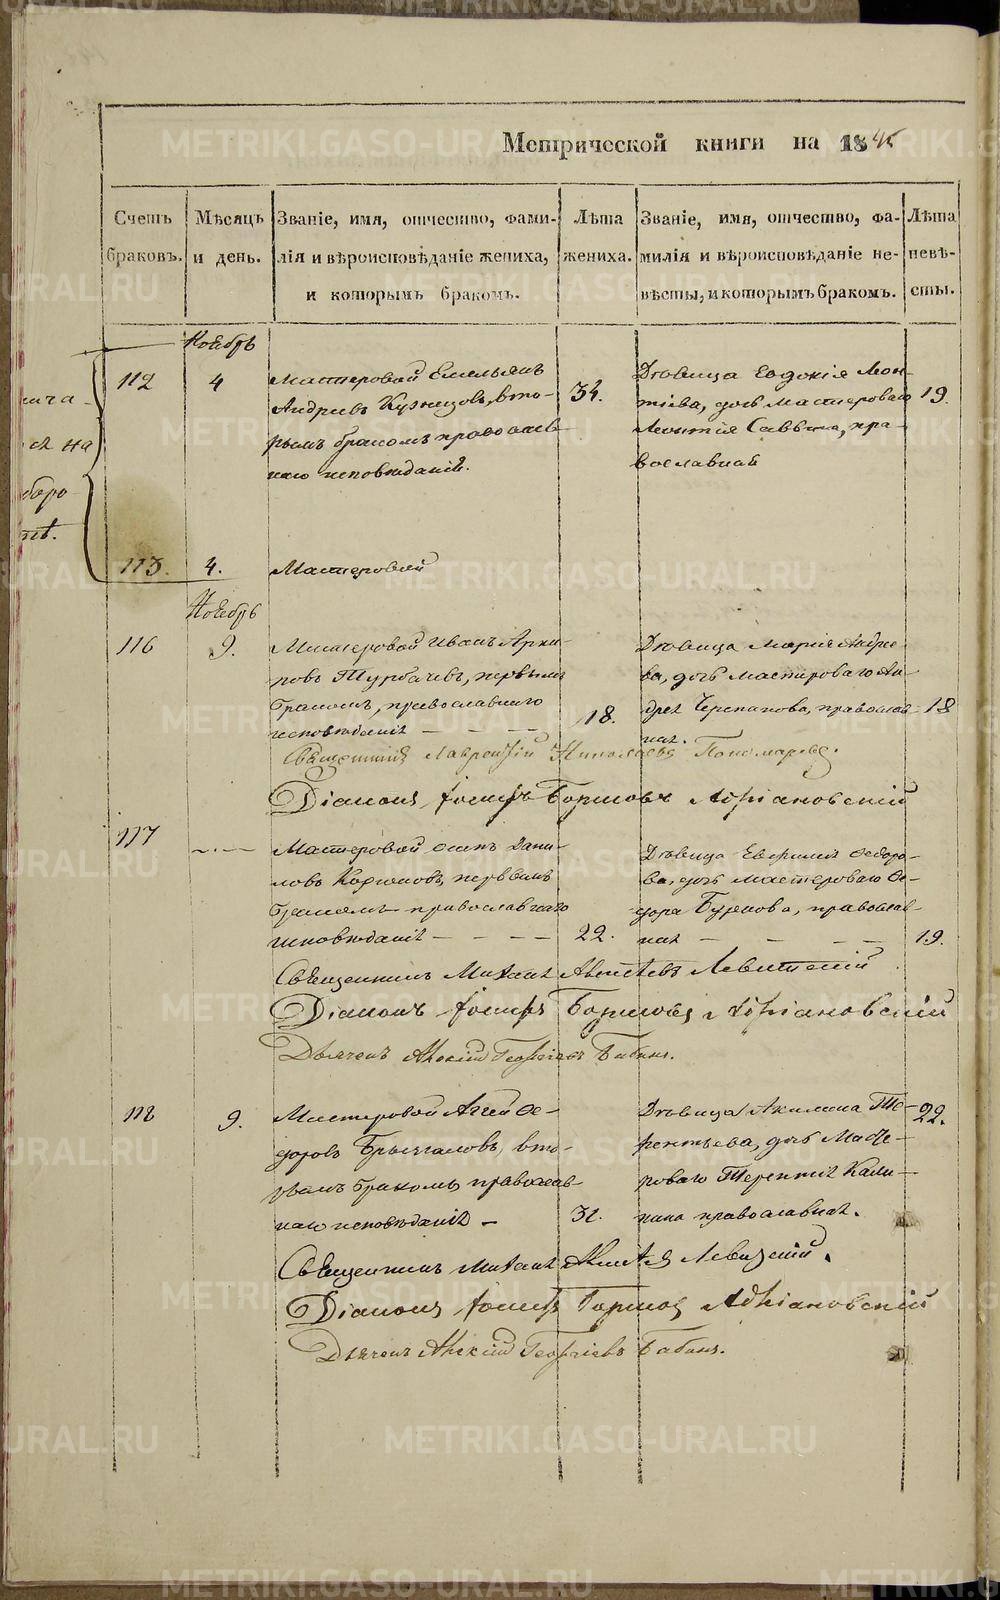 Метрической книги на 1845
Счетъ браковъ.
Мѣсяцъ и день.
Званіе, имя, отчество, фами-
лія и вѣроисповѣданіе жениха,
и которымъ бракомъ.
Лѣта жениха.
Званіе, имя, отчество, фа-
милія и вѣроисповѣданіе не-
вѣсты, и которымъ бракомъ.
Лѣта невѣ-
сты.
Ноебрь
112
4
Мастеровой Емельянъ
Андреевъ Кузнецовъ, вто-
рымъ бракомъ православ-
наго исповѣданія.
34.
Дѣвица Евдокія Леон-
тіева, дочь мастероваго
Леонтія Саввина, пра-
вославная
19.
113.
4.
Мастеровой
Ноебрь
116
9.
Мастеровой Иванъ Архи-
повъ Турбачевъ, первымъ
бракомъ, православнаго
исповѣданія
18.
Дѣвица Марія Андрее-
ва, дочь мастероваго Ан-
дрея Черепанова, православ-
ная.
18
Священникъ Лаврентій Николаевъ Пономаревъ.
Діаконъ Іосифъ Адріановскій
117
Мастеровой Осипъ Дани-
ловъ первымъ
бракомъ православнаго
исповѣданія
22.
Дѣвица Евфимія Федоро-
ва, дочь мастероваго Фе-
дора Буркова, православ-
ная
19.
Священникъ Михаилъ Алексѣевъ Левитскій
Діаконъ Іосифъ Адріановскій
Дьячекъ Алексій Георгіевъ Бабинъ.
118
9.
Мастеровой Аггей Фе-
доровъ Брызгаловъ, вто-
рымъ бракомъ, православ-
наго исповѣданія
32.
Дѣвица Акилина Те-
рентьева, дочь Масте-
роваго Терентія Кали-
нина православная.
22.
Священникъ Михаилъ Левитскій.
Діаконъ Іосифъ Адріановскій
Дьячекъ Алексій Георгіевъ Бабинъ.
METRIKI.GASO-URAL.RU